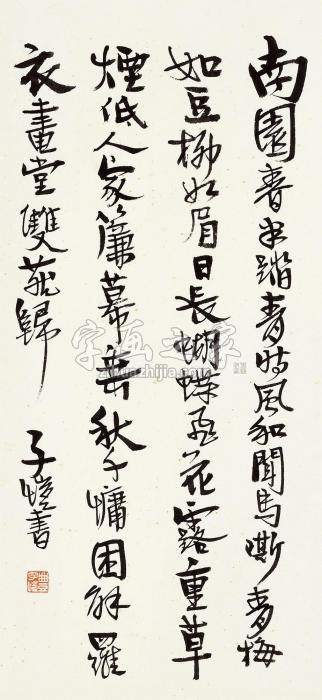 南園春半踏青時風和聞馬嘶青梅
如豆柳如眉日長蝴蝶飛花露重草
煙低人家簾幕垂秋千慵困解羅
衣畫堂雙燕歸
子愷書
字画之家